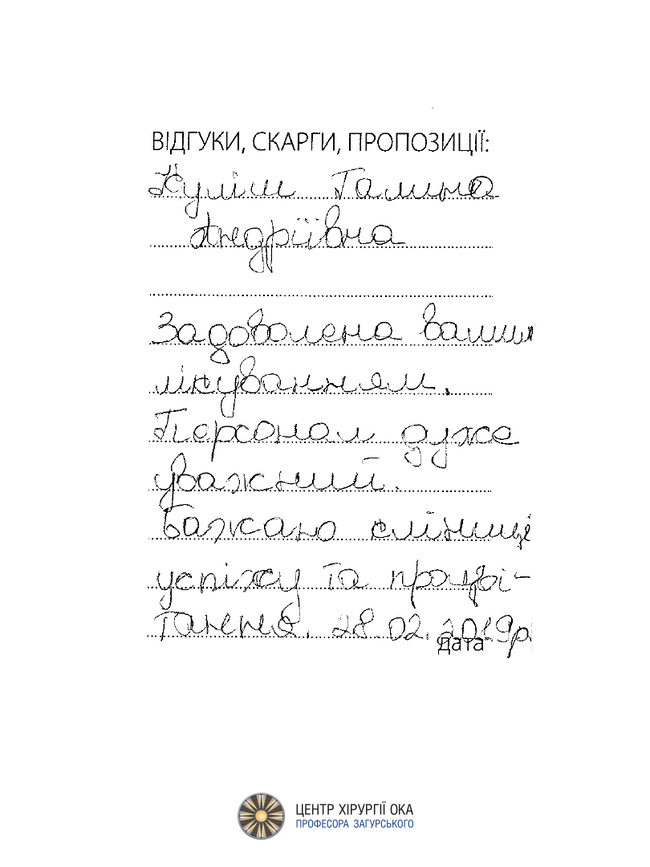 ВІДГУКИ, СКАРГИ, ПРОПОЗИЦІЇ:
Куліш Галина
Андріївна
Задоволена вашим
лікуванням.
Персонал дуже
уважний.
Бажаю клініці
успіху та процві-
тання. 28.02.2019р.
Дата
ЦЕНТР ХІРУРГІЇ ОКА
ПРОФЕСОРА ЗАГУРСЬКОГО